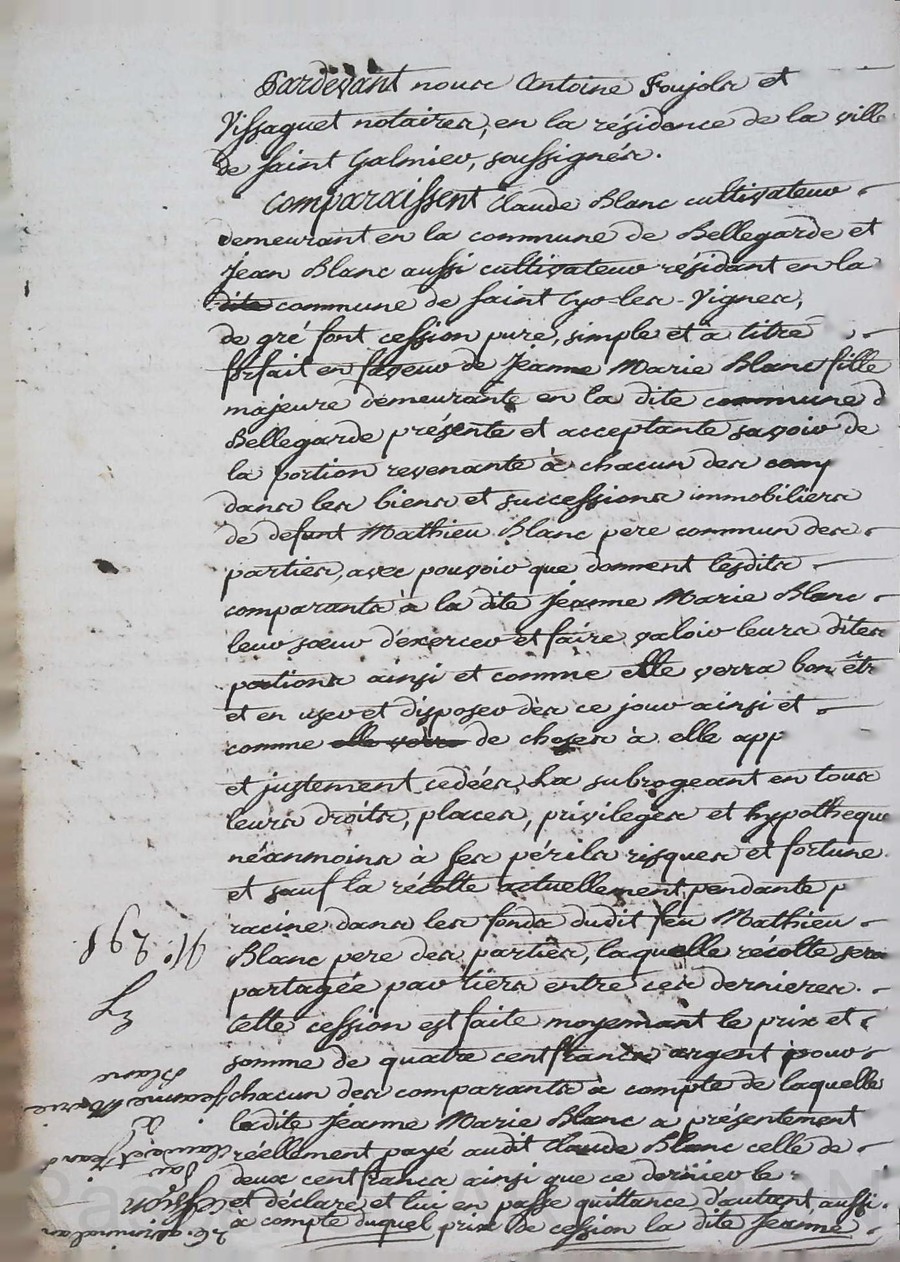 Pardevant nous Antoine Foujols et
Vissaguet notaires, en la résidence de la ville
de Saint Galmier, soussignés.
Comparaissent Claude Blanc cultivateur
demeurant en la commune de Bellegarde et
Jean Blanc aussi cultivateur résidant en la
dite commune de Saint Cyr-les-Vignes,
de gré font cession pure, simple et à titre
forfait en faveur de Jeanne Marie Blanc fille
majeure demeurante en la dite commune d
Bellegarde présente et acceptante savoir de
la portion revenante à chacun des comp
dans les biens et successions immobiliers
de defunt Mathieu Blanc pere commun des
parties, avec pouvoir que donnent lesdits
comparants à la dite Jeanne Marie Blanc
leur sœur d'exercer et faire valoir leurs dites
portions ainsi et comme elle verra bon êtr
et en user et disposer dès ce jour ainsi et
comme elle verra de choses à elle app
et justement cedées, La subrogeant en tous
leurs droits, places, privileges et hypotheque
néanmoins à ses périls risques et fortune
et sauf la récolte actuellement pendante p
racine dans les fonds dudit feu Mathieu
Blanc pere des parties, laquelle récolte sera
partagée par tiers entre ces dernieres.
Cette cession est faite moyennant le prix et
somme de quatre cent francs argent pour
chacun des comparants à compte de laquelle
ladite Jeanne Marie Blanc a présentement
réellement payé audit Claude Blanc celle de
deux cent francs ainsi que ce dernier le
et déclare, et lui en passe quittance, d'autant, aussi
à compte duquel prix de cession la dite Jeanne
Cession
par
Claude et Jean
à
Jeanne Marie
Blanc